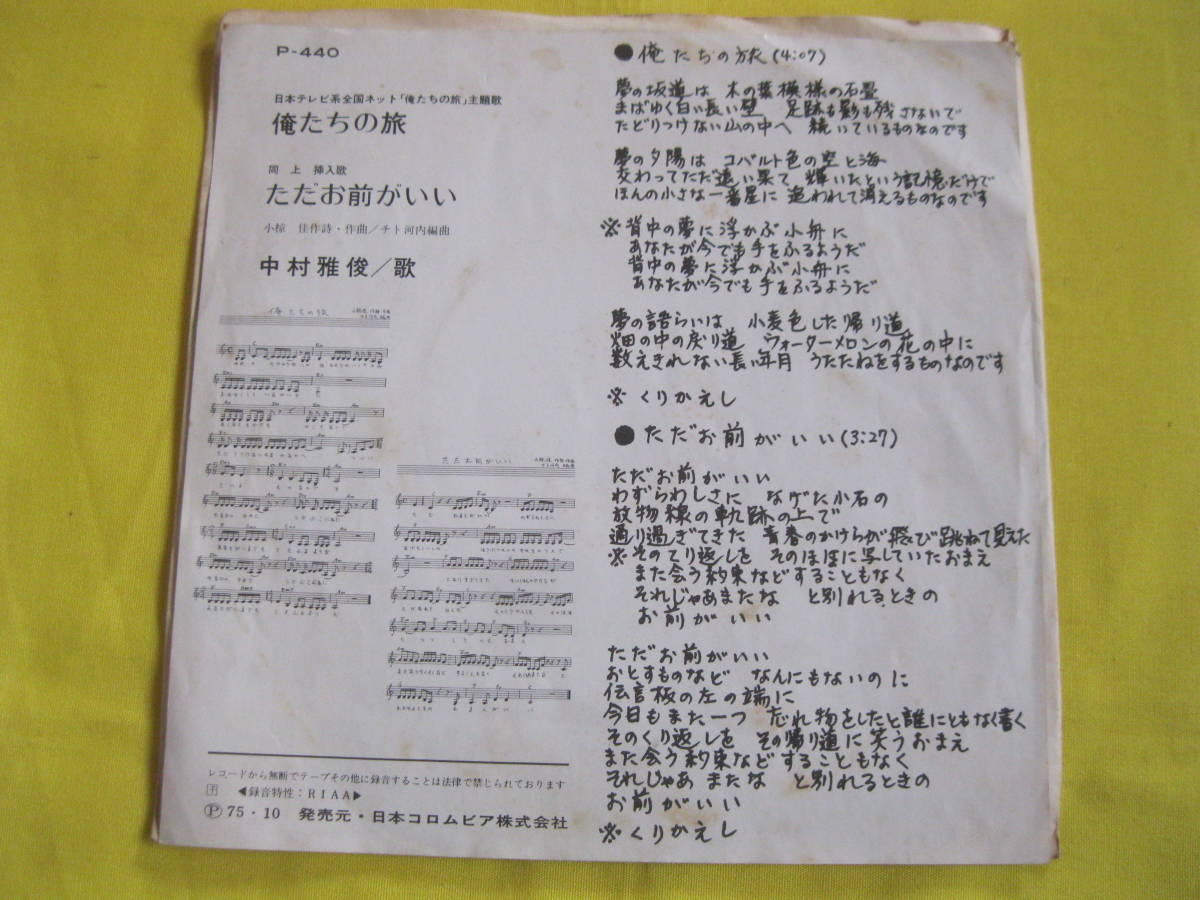 P-440
日本テレビ系全国ネット「俺たちの旅」主題歌
俺たちの旅
同上 挿入歌
ただお前がいい
小椋 佳作詩・作曲/チト河内編曲
中村雅俊/歌
俺たちの旅
ただお前がいい
レコードから無断でテープその他に録音することは法律で禁じられております
◀録音特性:RIAA▶
Ⓟ75・10 発売元・日本コロムビア株式会社
●俺たちの旅(4:07)
夢の坂道は 木の葉模様の石畳
まばゆく白い長い壁 足跡も影も残さないで
たどりつけない山の中へ 続いているものなのです
夢の夕陽は コバルト色の空と海
交わってただ遠い果て 輝いたという記憶だけで
ほんの小さな一番星に 追われて消えるものなのです
※背中の夢に浮かぶ小舟に
あなたが今でも手をふるようだ
背中の夢に浮かぶ小舟に
あなたが今でも手をふるようだ
夢の語らいは 小麦色した帰り道
畑の中の戻り道 ウォーターメロンの花の中に
数えきれない長い年月 うたたねをするものなのです
※くりかえし
●ただお前がいい(3:27)
ただお前がいい
わずらわしさに なげた小石の
放物線の軌跡の上で
通り過ぎてきた 青春のかけらが飛び跳ねて見えた
※そのてり返しを そのほほに写していたおまえ
また会う約束などすることもなく
それじゃあまたな と別れるときの
お前がいい
ただお前がいい
おとすものなど なんにもないのに
伝言板の左の端に
今日もまた一つ 忘れ物をしたと誰にともなく書く
そのくり返しを その帰り道に笑うおまえ
また会う約束などすることもなく
それじゃあ またな と別れるときの
お前がいい
※くりかえし